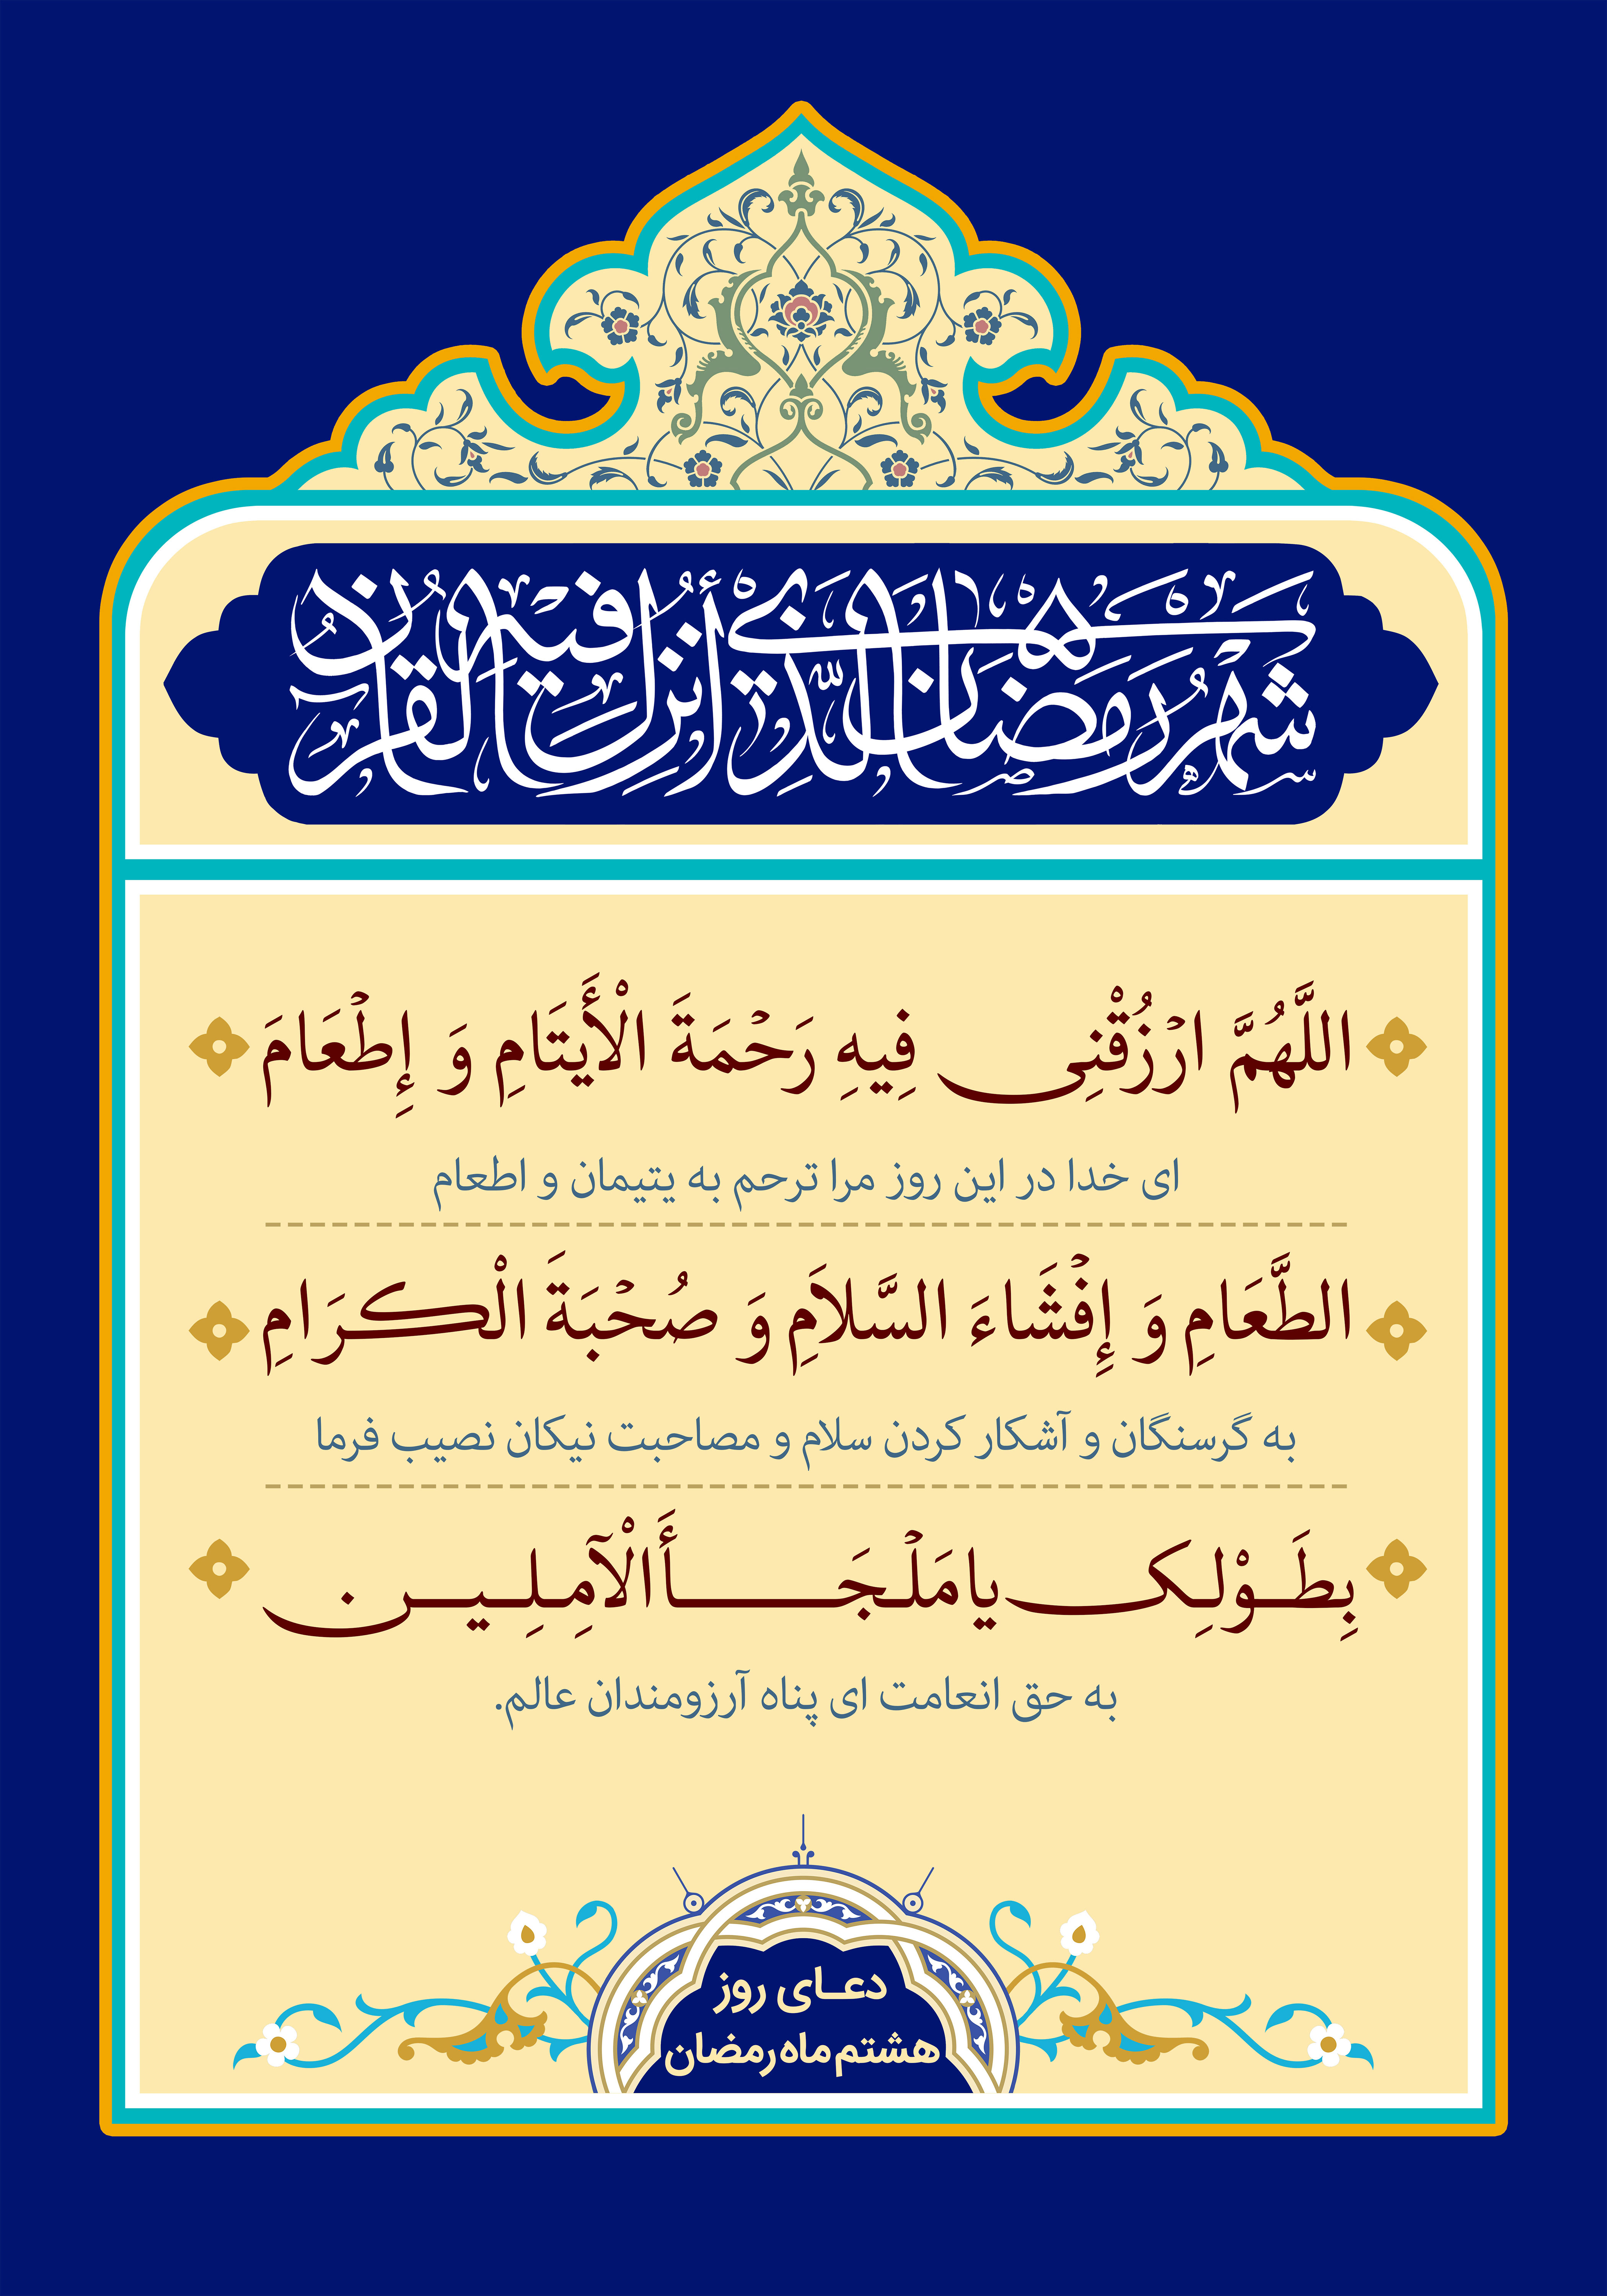 شَهْرُ رَمَضَانَ الَّذِي أُنْزِلَ فِيهِ الْقُرْآنُ
اللَّهُمَّ ارْزُقْنِی فِيهِ رَحْمَةَ الْأَيْتَامِ وَ إِطْعَامَ
ای خدا در این روز مرا ترحم به یتیمان و اطعام
الطَّعَامِ وَ إِفْشَاءَ السَّلاَمِ وَ صُحْبَةَ الْکرَامِ
به گرسنگان و آشکار کردن سلام و مصاحبت نیکان نصیب فرما
بِطَوْلِک یا مَلْجَأَ الْآمِلِین
به حق انعامت ای پناه آرزومندان عالم.
دعای روز
هشتم ماه رمضان